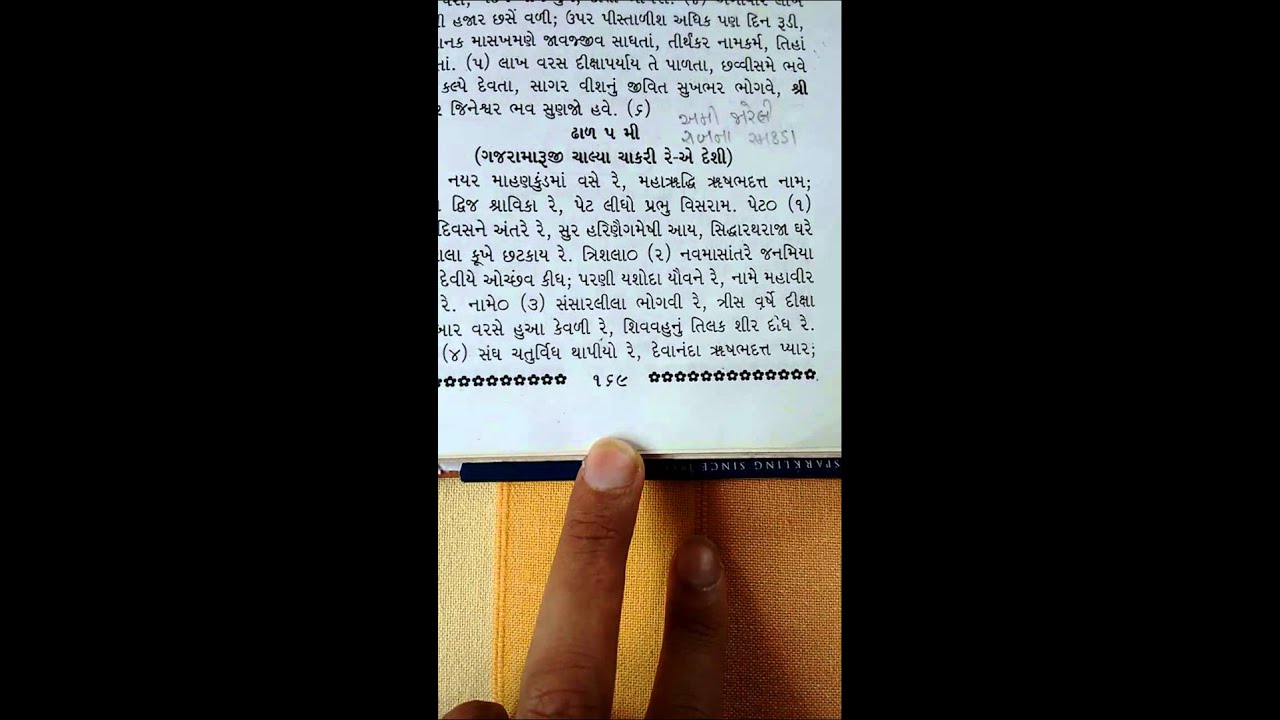 હજાર છસેં વળી; ઉપર પીસ્તાળીશ અધિક પણ દિન રૂડી,
માસખમણે જાવજ્જીવ સાધતાં, તીર્થંકર નામકર્મ, તિહાં
(૫) લાખ વરસ દીક્ષાપર્યાય તે પાળતા, છવ્વીસમે ભવે
કલ્પે દેવતા, સાગર વીશનું જીવિત સુખભર ભોગવે, શ્રી
જિનેશ્વર ભવ સુણજો હવે. (૬)
અમી
ઢાળ ૫ મી
(ગજરામારૂજી ચાલ્યા ચાકરી રે-એ દેશી)
નયર માહણકુંડમાં વસે રે, મહાઋદ્ધિ ઋષભદત્ત નામ;
દ્વિજ શ્રાવિકા રે, પેટ લીધો પ્રભુ વિસરામ. પેટ૦ (૧)
દિવસને અંતરે રે, સુર હરિણૈગમેષી આય, સિદ્ધારથરાજા ઘરે
કૂખે છટકાય રે. ત્રિશલા૦ (૨) નવમાસાંતરે જનમિયા
દેવીયે ઓચ્છંવ કીધ; પરણી યશોદા યૌવને રે, નામે મહાવીર
રે. નામે૦ (૩) સંસારલીલા ભોગવી રે, ત્રીસ વર્ષે દીક્ષા
વરસે હુઆ કેવળી રે, શિવવહુનું તિલક શીર દીધ રે.
(૪) સંઘ ચતુર્વિધ થાપીયો રે, દેવાનંદા ઋષભદત્ત પ્યાર;
૧૬૯
SPARKLING SINCE